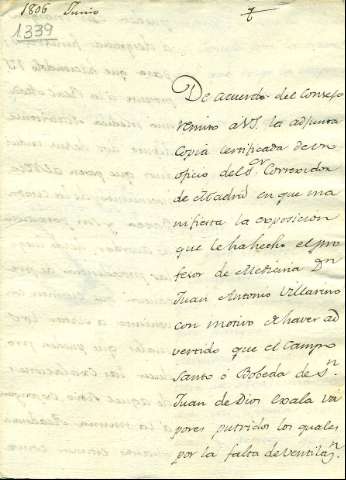 1806 Junio
1339
De acuerdo del Consejo
remito a V.S. la adjunta
Copia certificada de un
oficio del S.or Corregidor
de Madrid en que ma
nifiesta la exposicion
que le ha hecho el pro
fesor de Medicina Dn
Juan Antonio Villarino
con motivo de haver ad
vertido que el Campo
Santo ó Bobeda de Sn
Juan de Dios exala va
pores putridos los quales
por la falta de ventilan